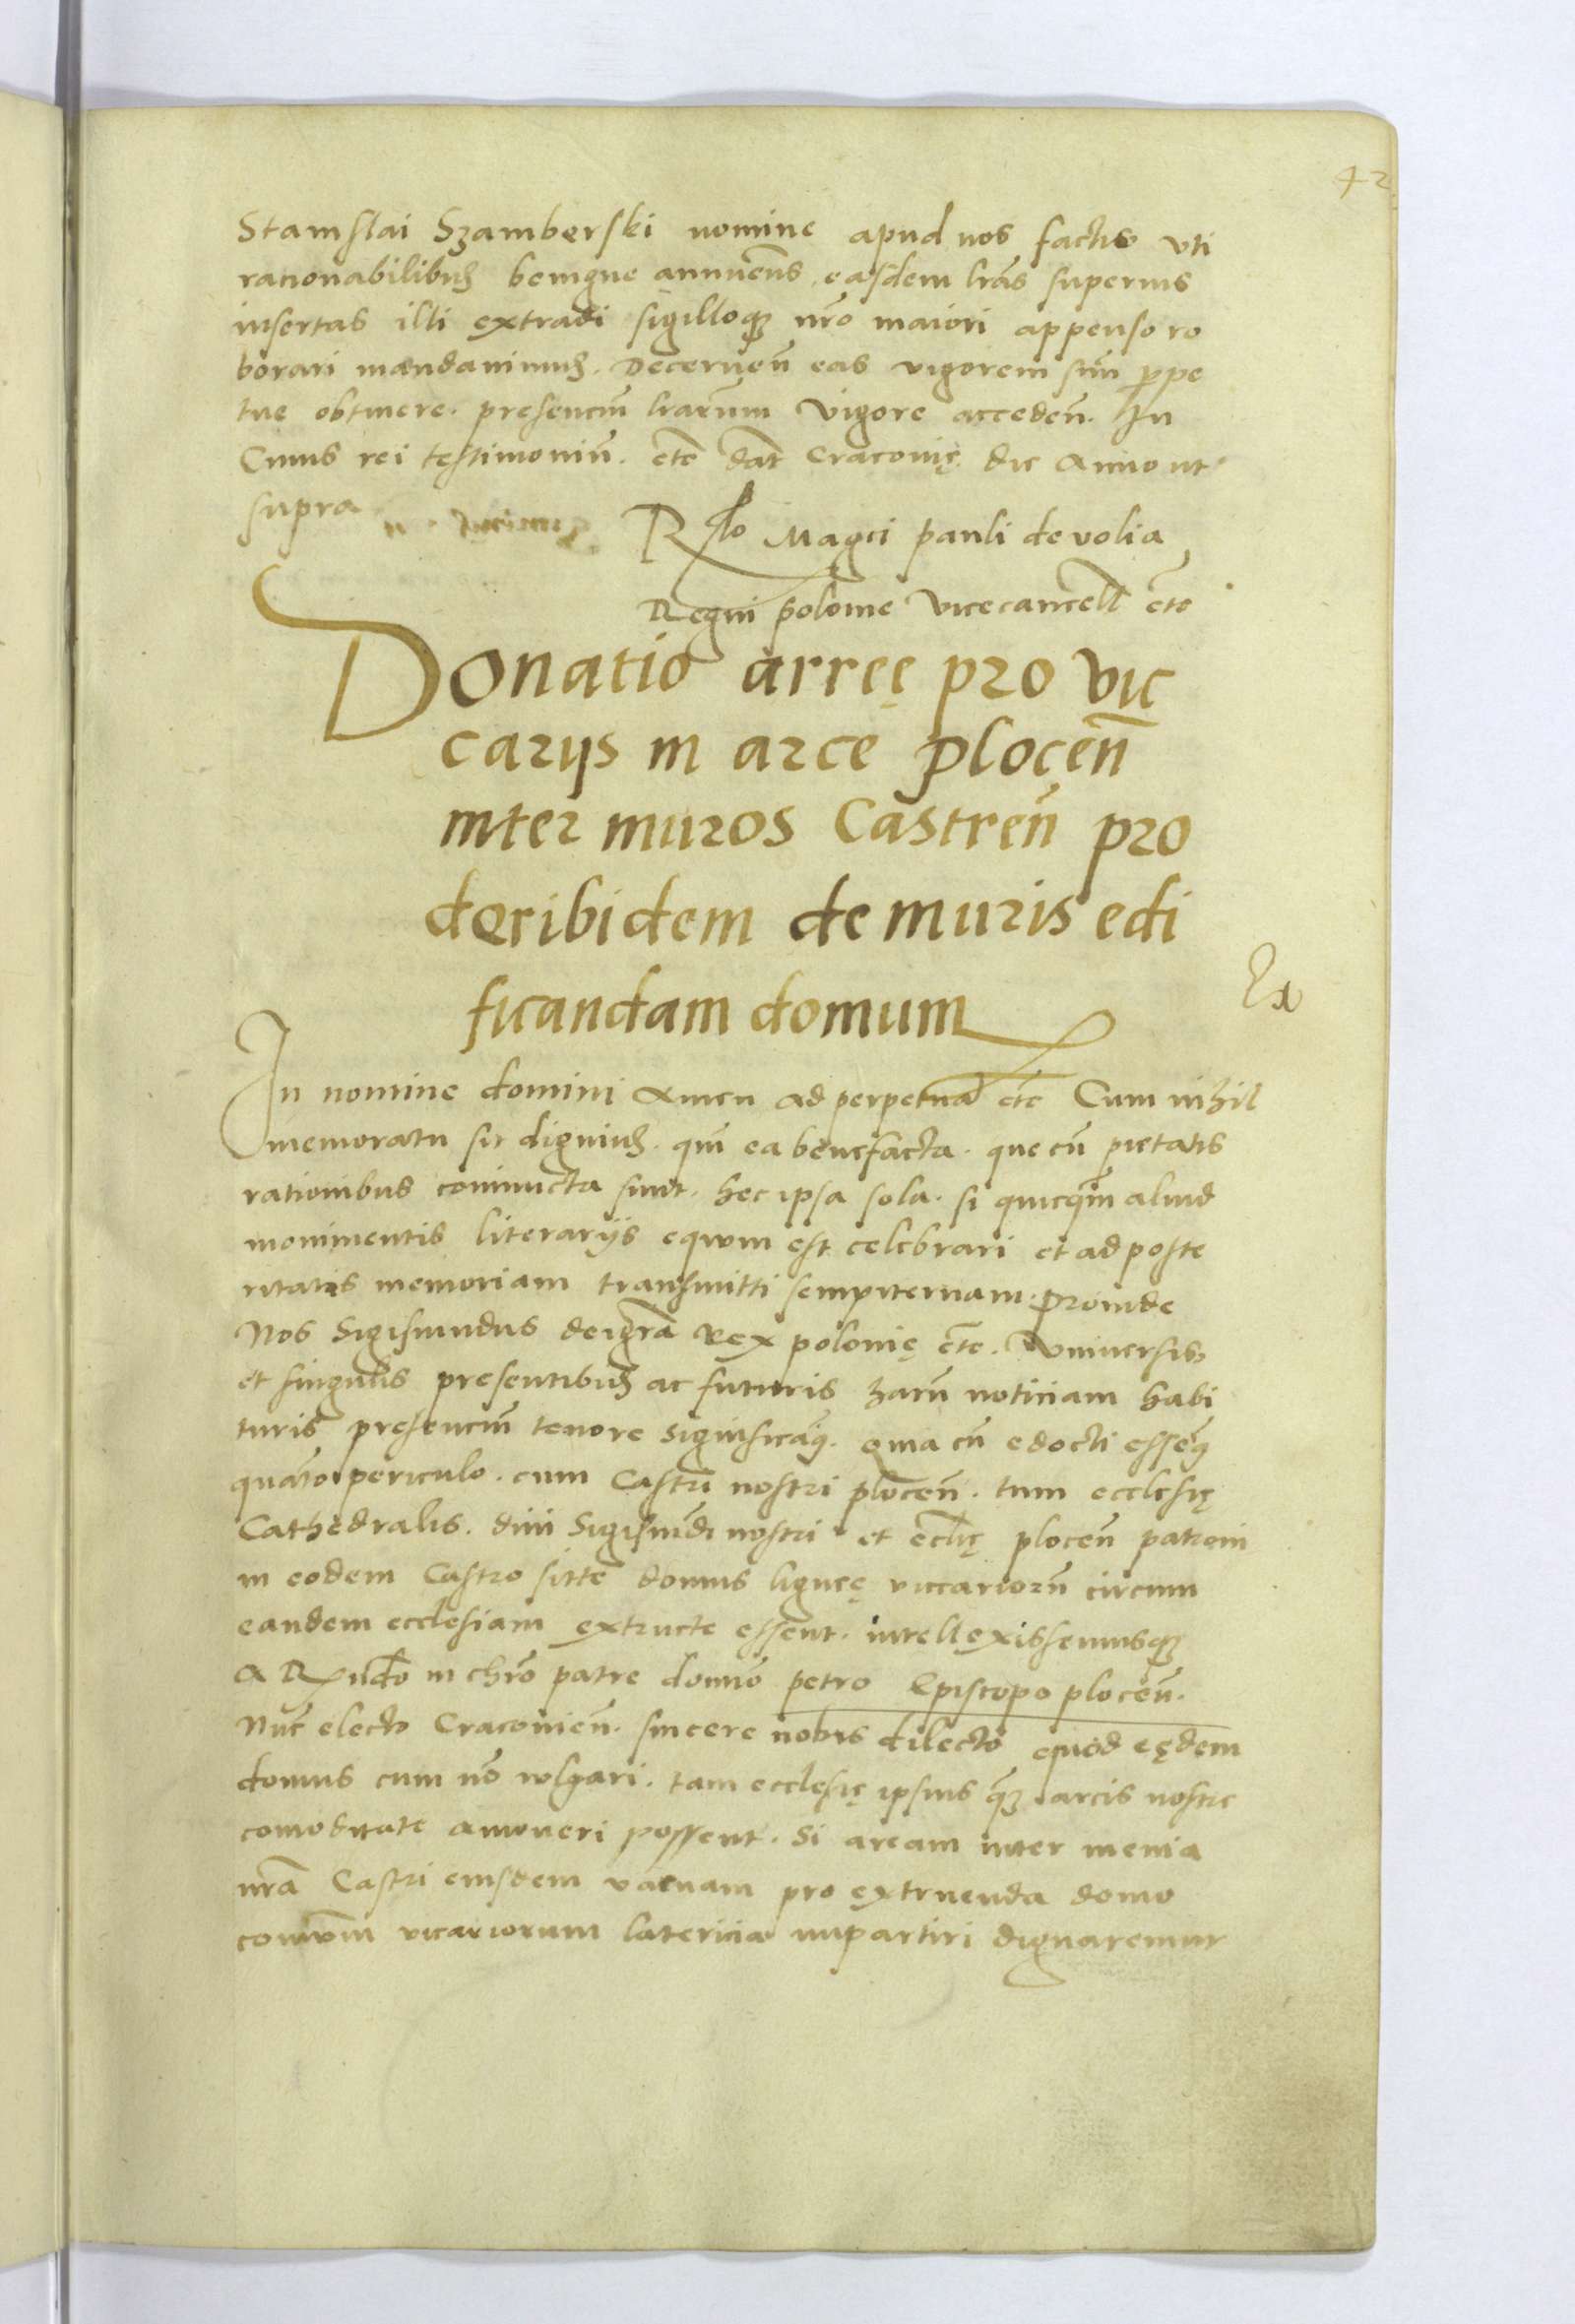 42
Stanislai Szamberski nomine apud nos factis uti
racionabilibus benigne annuens easdem lras superius
insertas illi extradi sigilloque nro maiori appenso ro
borari mandavimus. Decernen eas vigorem suu perpe
tue obtinere. presenciu lrarum vigore acceden. In
Cuius rei testimoniu. etc dat Cracovię die Anno ut
supra
Rlo Magci Pauli de volia
Regni polonie vicecancell etc
Donatio arręę pro vic
carijs in arce plocen
inter muros Castren pro
deribidem de muris edi
ficandam domum
Ex
In nomine domini Amen ad perpetua etc Cum nihil
memoratu sit dignius. qm ea benefacta. que cu pietatis
rationibus coniuncta sunt. hec ipsa sola. si quicqm aliud
monimentis literarijs equum est celebrari et ad poste
ritatis memoriam transmitti sempiternam. Proinde
Nos Sigismundus dei gra Rex polonię etc. Universis
et singulis presentibus ac futuris haru noticiam habi
turis presenciu tenore significaq. quia cu edocti esseq
quato periculo. cum Castri nostri plocen. tum ecclesię
Cathedralis. divi Sigismudi nostri et eclię plocen patroni
in eodem Castro sitte domus lignee viccarioru circum
eandem ecclesiam extructe essent. intellexissemusque
A Rndo in chro patre domio petro Episcopo plocen.
Nuc electo Cracovien. sincere nobis dilecto quod eędem
domus cum no vulgari. tam ecclesię ipsius qm arcis nostre
comoditate amoveri possent. Si aream inter menia
nra Castri eiusdem vacuam pro extruenda domo
comuni vicariorum latericia impartiri dignaremur